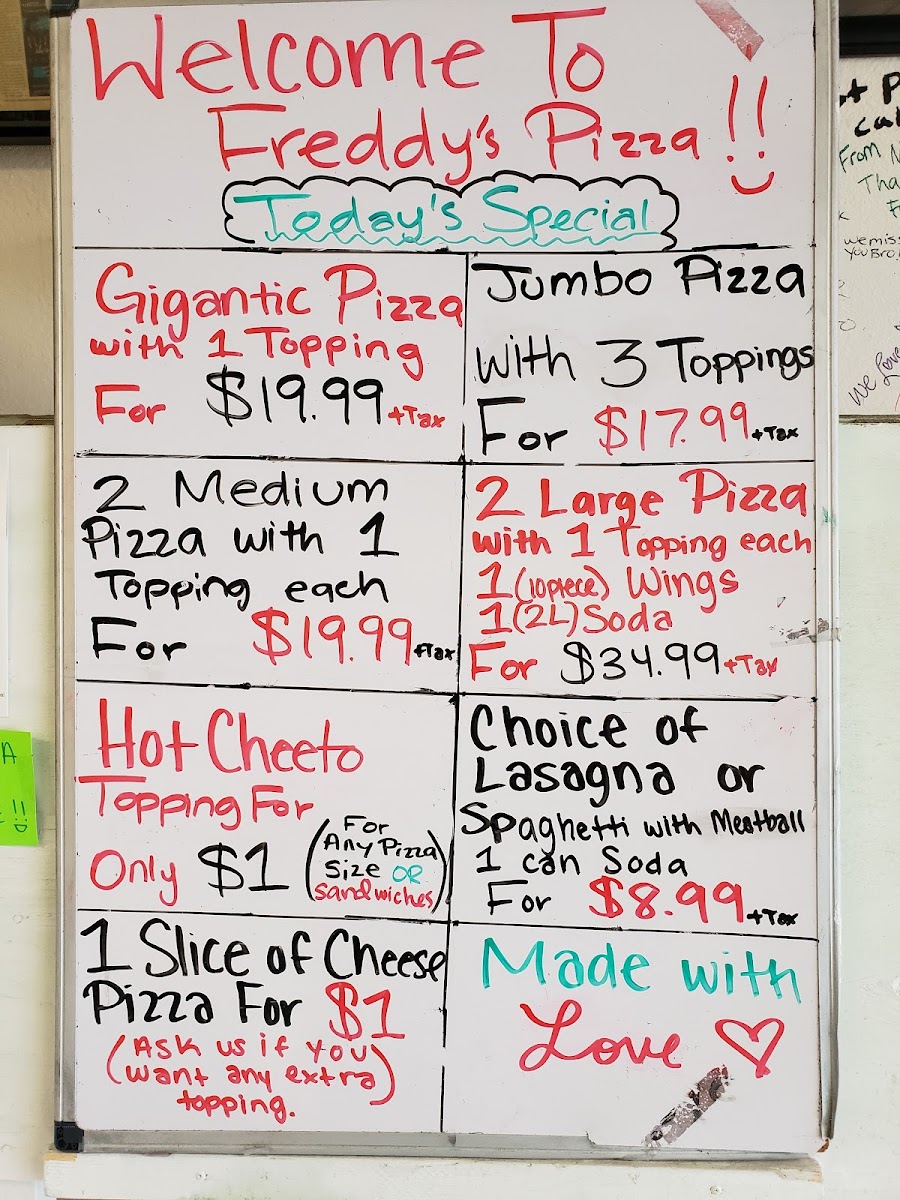 Welcome To
Freddy's Pizza !!
Today's Special
Gigantic Pizza
with 1 Topping
For $19.99 +Tax
Jumbo Pizza
With 3 Toppings
For $17.99 +Tax
2 Medium
Pizza with 1
Topping each
For $19.99 +Tax
2 Large Pizza
with 1 Topping each
1 (10piece) Wings
1 (2L) Soda
For $34.99 +Tax
Hot Cheeto
Topping For
Only $1
(For
Any Pizza
Size OR
sandwiches)
Choice of
Lasagna or
Spaghetti with Meatball
1 can Soda
For $8.99 +Tax
1 Slice of Cheese
Pizza For $1
(Ask us if you
want any extra
topping.)
Made with
Love
From
we miss
You Bro!
We Love
A
!!